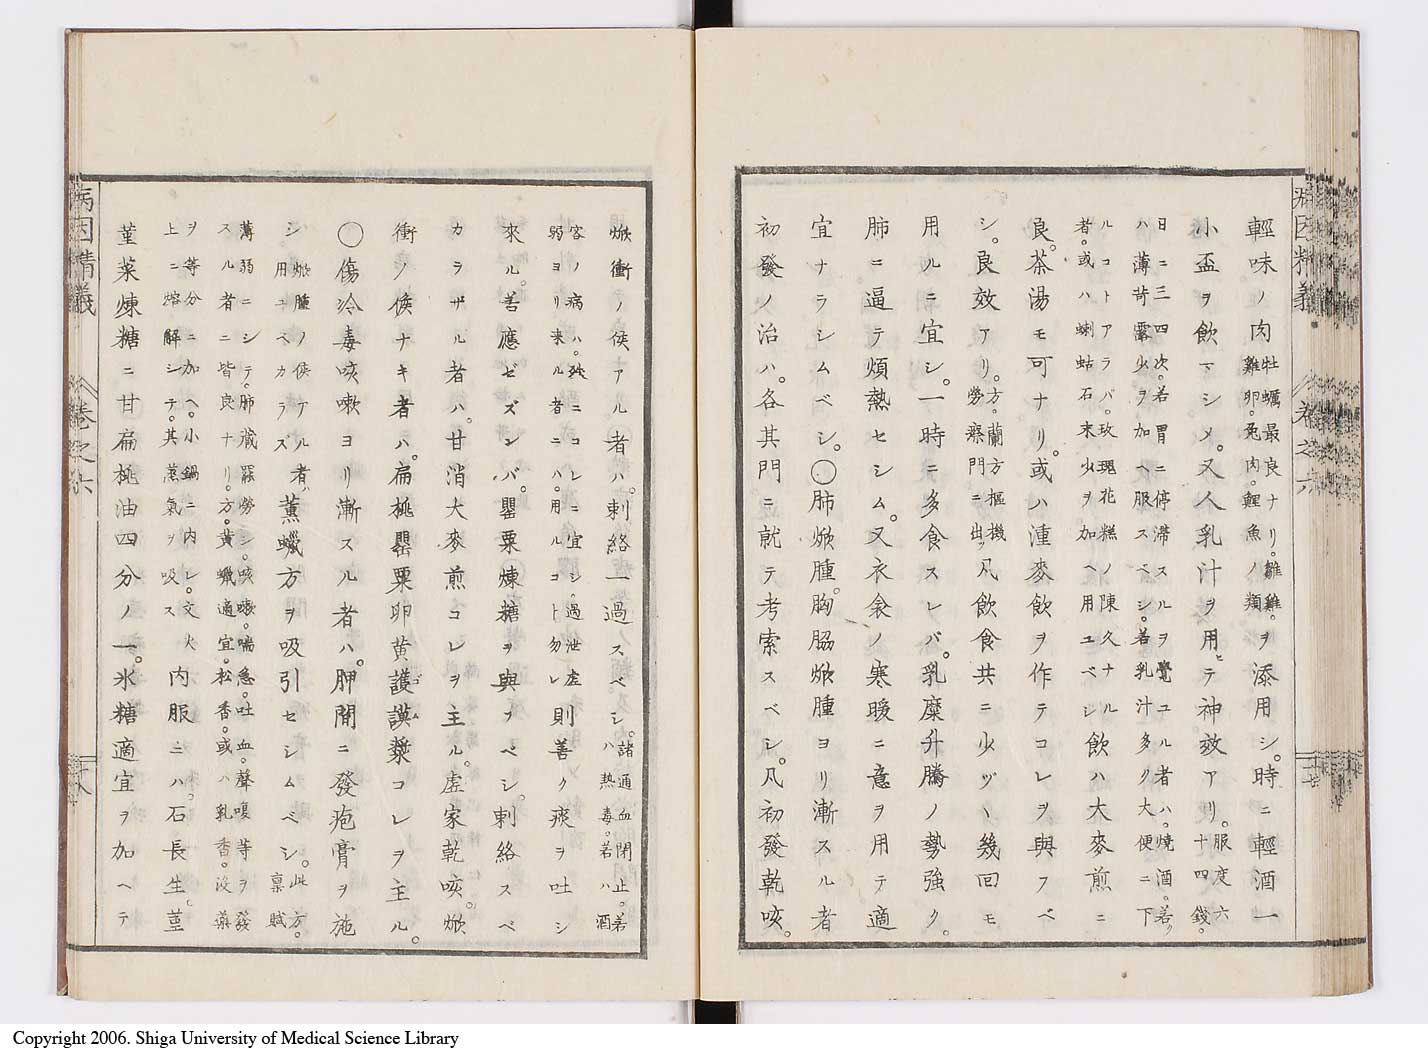 病因精義
卷之六
十七
輕味ノ肉牡蠣最良ナリ。雞雞。
雞卵。兔肉。鯉魚ノ類ヲ添用シ。時ニ輕酒一
小盃ヲ飲下シメ。又人乳汁ヲ用ヒテ神效アリ。服度六
十四錢。
日ニ三四次。若胃ニ停滯スルヲ覺ユル者ハ。燒酒。若ク
ハ薄苛露少ヲ加ヘ服スベシ。若乳汁多ク大便ニ下
ルコトアラバ。玫瑰花糕ノ陳久ナル
者。或ハ蝲蛄石末少ヲ加ヘ用ユベシ飲ハ大麥煎ニ
良。茶湯モ可ナリ。或ハ湩麥飲ヲ作テコレヲ與フベ
シ。良效アリ。方。蘭方樞機
勞瘵門ニ出ツ凡飲食共ニ少ヅヽ幾回モ
用ルニ宜シ。一時ニ多食スレバ。乳糜升騰ノ勢強ク。
肺ニ逼テ煩熱セシム。又衣衾ノ寒暖ニ意ヲ用テ適
宜ナラシムベシ。〇肺焮腫。胸脇焮腫ヨリ漸スル者
初發ノ治ハ。各其門ニ就テ考索スベシ。凡初發乾咳。
焮衝ノ侯アル者ハ。刺絡一過スベシ。諸通血閉止。若
ハ熱毒。若ハ酒
客ノ病ハ。殊ニコレニ宜シ。過泄虛
弱ヨリ来ル者ニハ。用ルコト勿レ則善ク痰ヲ吐シ
來ル。善應ゼズンバ。罌粟煉糖ヲ與ヲベシ。刺絡スベ
カラザル者ハ。甘消大麥煎コレヲ主ル。虛家乾咳。焮
衝ノ候ナキ者ハ。扁桃罌粟卵黄護謨漿コレヲ主ル。
〇傷冷毒咳嗽ヨリ漸スル者ハ。胛間ニ發疱膏ヲ施
シ焮腫ノ侯アル者ハ
用ユベカラズ薫蠟方ヲ吸引セシムベシ。此方。
稟賦
薄弱ニシテ。肺蔵羸勞シ。咳嗽。喘急。吐血。聲嗄等ヲ發
スル者ニ皆良ナリ。方。黄蠟適宜。松香。或ハ乳香。没藥
ヲ等分ニ加ヘ。小鍋ニ内レ。文火
上ニ熔解シテ。其蒸氣ヲ吸ス内服ニハ。石長生。菫
菫菜煉糖ニ甘扁桃油四分ノ一。氷糖適宜ヲ加ヘテ
病因精義
卷之六
十八
Copyright 2006. Shiga University of Medical Science Library